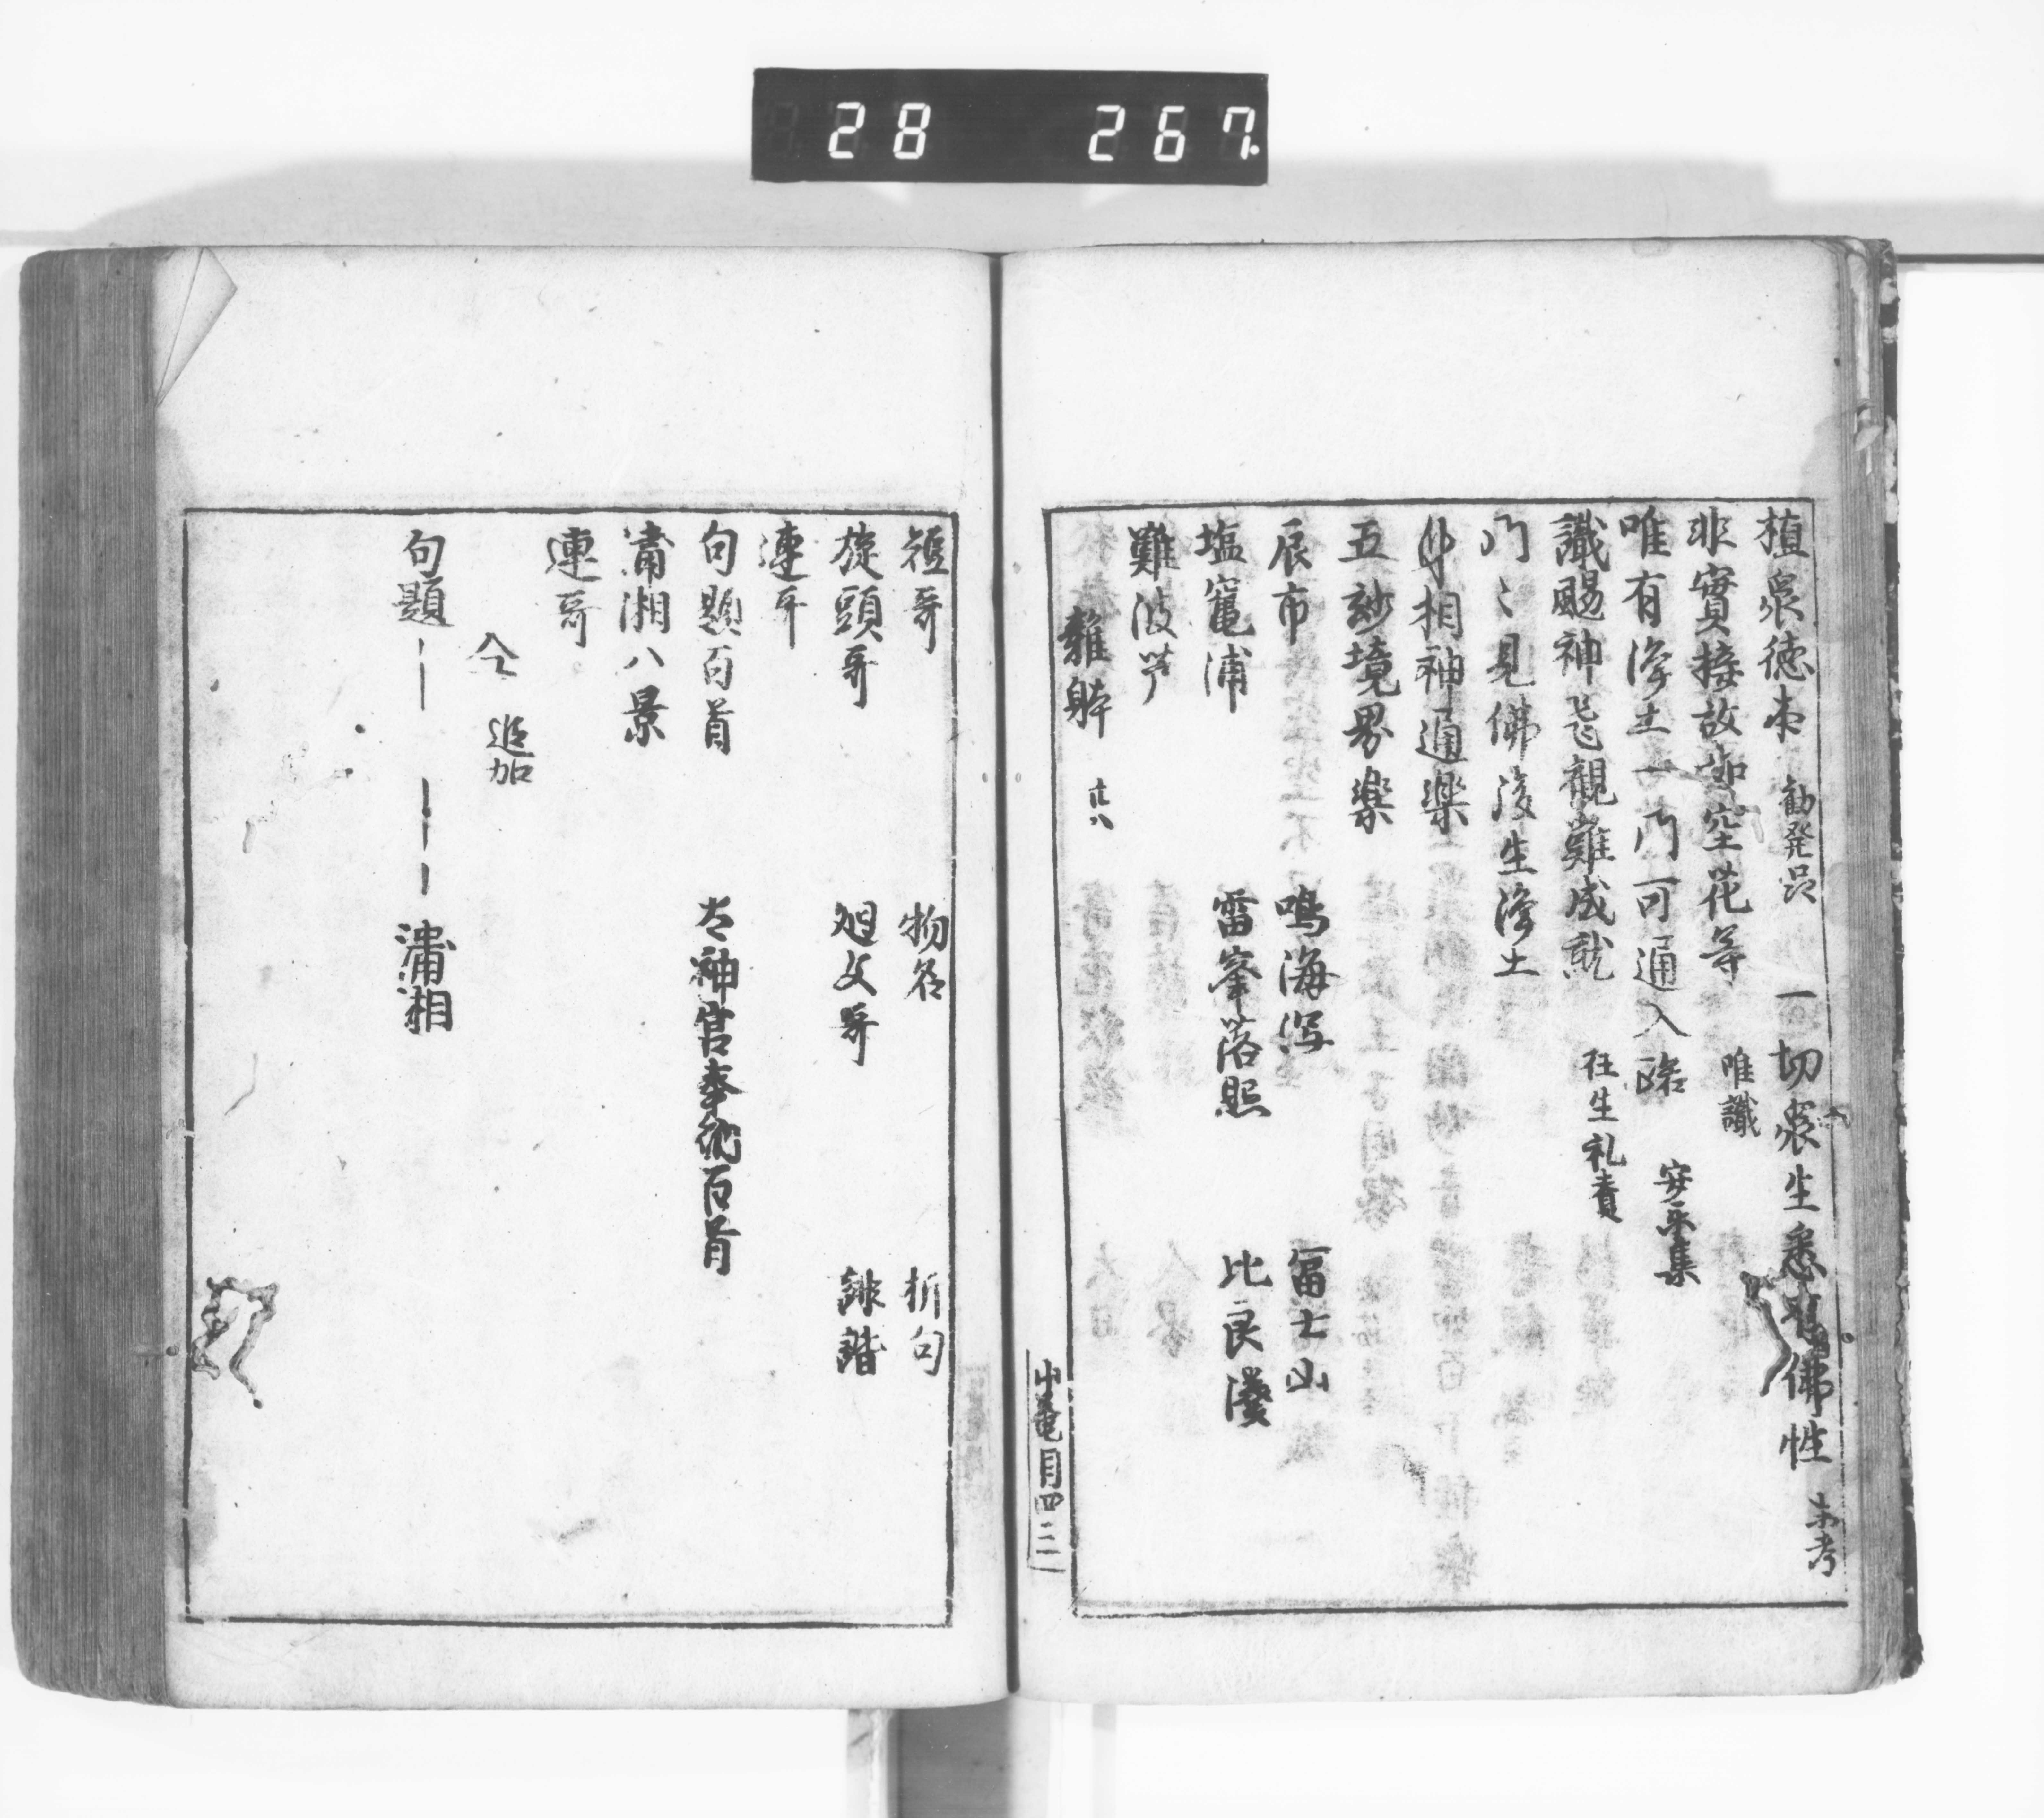 28 267
植衆徳本 勧発品 一切衆生悉有佛性 未考
非實接故如空花等 唯識
唯有浄土一門可通入路 安楽集
識颺神飛觀難成就 往生礼賛
門〻見佛浚生浄土
身相神通楽
五妙境界楽
辰市 鳴海潟 冨士山
塩竈浦 雷峯落照 比良湊
難波芦
雜躰 十八
中竜目四二
短哥 物名 折句
旋頭哥 廻文哥 誹諧
連哥
句題百首 太神宮奉納百首
瀟湘八景
連哥
今 追加
句題 瀟湘